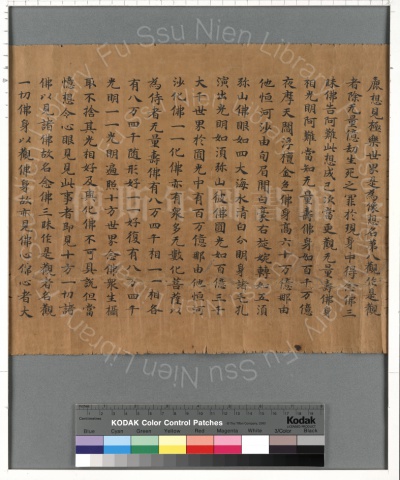 麁想見極樂世界是為像想名第八觀作是觀
者除无量億劫生死之罪於現身中得念佛三
昧佛告阿難此想成已次當更觀无量壽佛身
相光明阿難當知无量壽佛身如百千万億
夜摩天閻浮檀金色佛身高六十万億那由
他恒河沙由旬眉間白毫右旋婉轉如五須
弥山佛眼如四大海水清白分明身諸毛孔
演出光明如須弥山彼佛圓光如百億三千
大千世界於圓光中有百万億那由他恒河
沙化佛一一化佛亦有衆多无數化菩薩以
為侍者无量壽佛有八万四千相一一相各
有八万四千隨形好一一好復有八万四千
光明一一光明遍照十方世界念佛衆生攝
取不捨其光相好及與化佛不可具說但當
憶想令心眼見見此事者即見十方一切諸
佛以見諸佛故名念佛三昧作是觀者名觀
一切佛身以觀佛身故亦見佛心佛心者大
Fu Ssu Nien Library
KODAK Color Control Patches
Kodak
Blue Cyan Green Yellow Red Magenta White 3/Color Black